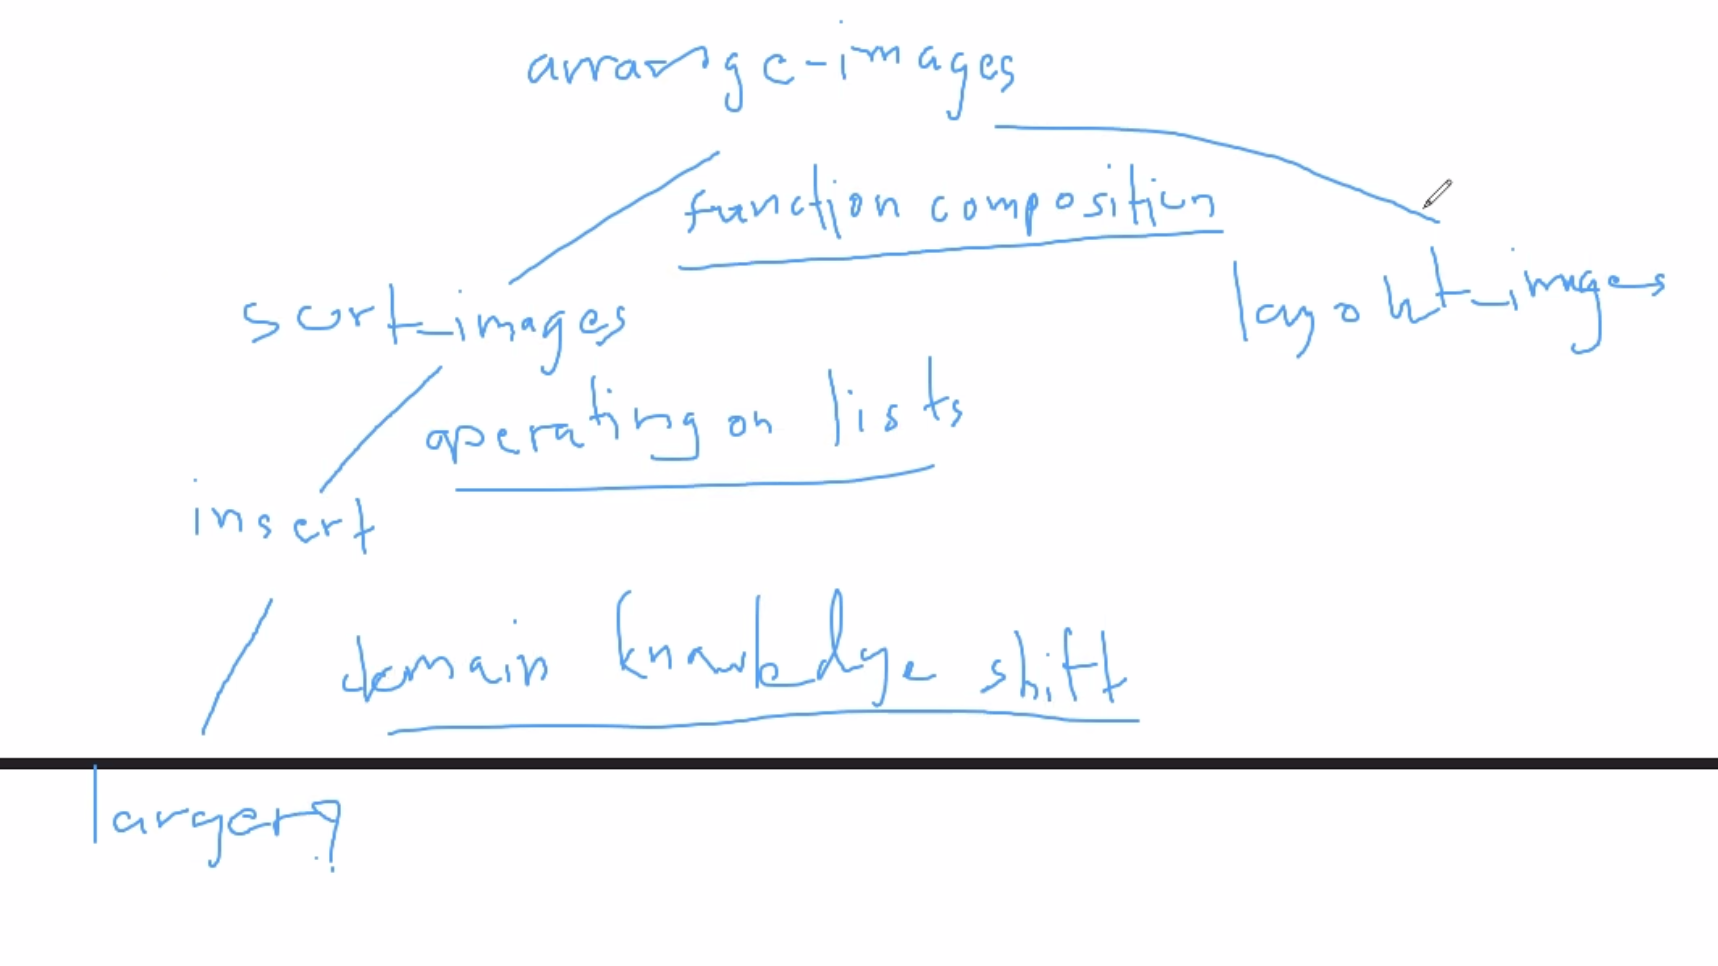 arrange-images
function composition
sort-images
layout-images
operating on lists
insert
domain knowledge shift
larger?